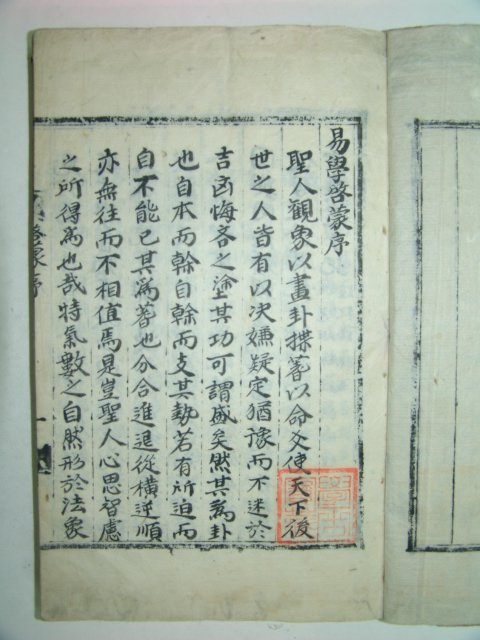 易學啓蒙序
聖人觀象以畫卦揲蓍以命爻使天下後
世之人皆有以决嫌疑定猶豫而不迷於
吉凶悔吝之塗其功可謂盛矣然其爲卦
也自本而幹自幹而支其勢若有所迫而
自不能已其爲蓍也分合進退從橫逆順
亦無往而不相值焉是豈聖人心思智慮
之所得爲也哉特氣數之自然形於法象
啓蒙序